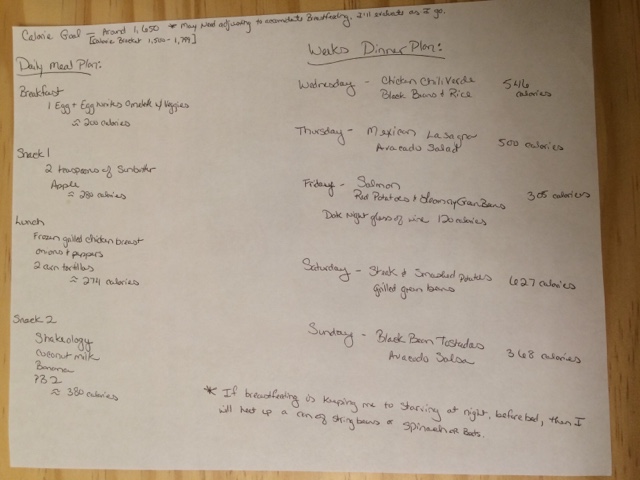 Calorie Goal - Around 1,650 * May need adjusting to accomodate Breastfeeding, I'll evaluate as I go.
[Calorie Bracket 1,500 - 1,799]
Daily Meal Plan:
Breakfast
1 Egg + Egg whites Omelett w/ Veggies
≈ 200 calories
Snack 1
2 teaspoons of Sunbutter
Apple
≈ 280 calories
Lunch
Frozen grilled chicken breast
onions & peppers
2 corn tortillas
≈ 274 calories
Snack 2
Shakeology
coconut milk
Banana
PB2
≈ 380 calories
Weeks Dinner Plan:
Wednesday - Chicken Chili Verde 546
Black Beans & Rice calories
Thursday - Mexican Lasagna 500 calories
Avacado Salad
Friday - Salmon 305 calories
Red Potatoes & Green Beans
Date Night glass of wine 120 calories
Saturday - Steak & Smashed Potatoes 627 calories
grilled green beans
Sunday - Black Bean Tostadas 368 calories
Avacado Salsa
* If breastfeeding is keeping me to starving at night, before bed, then I
will heat up a can of string beans or Spinach or Beets.